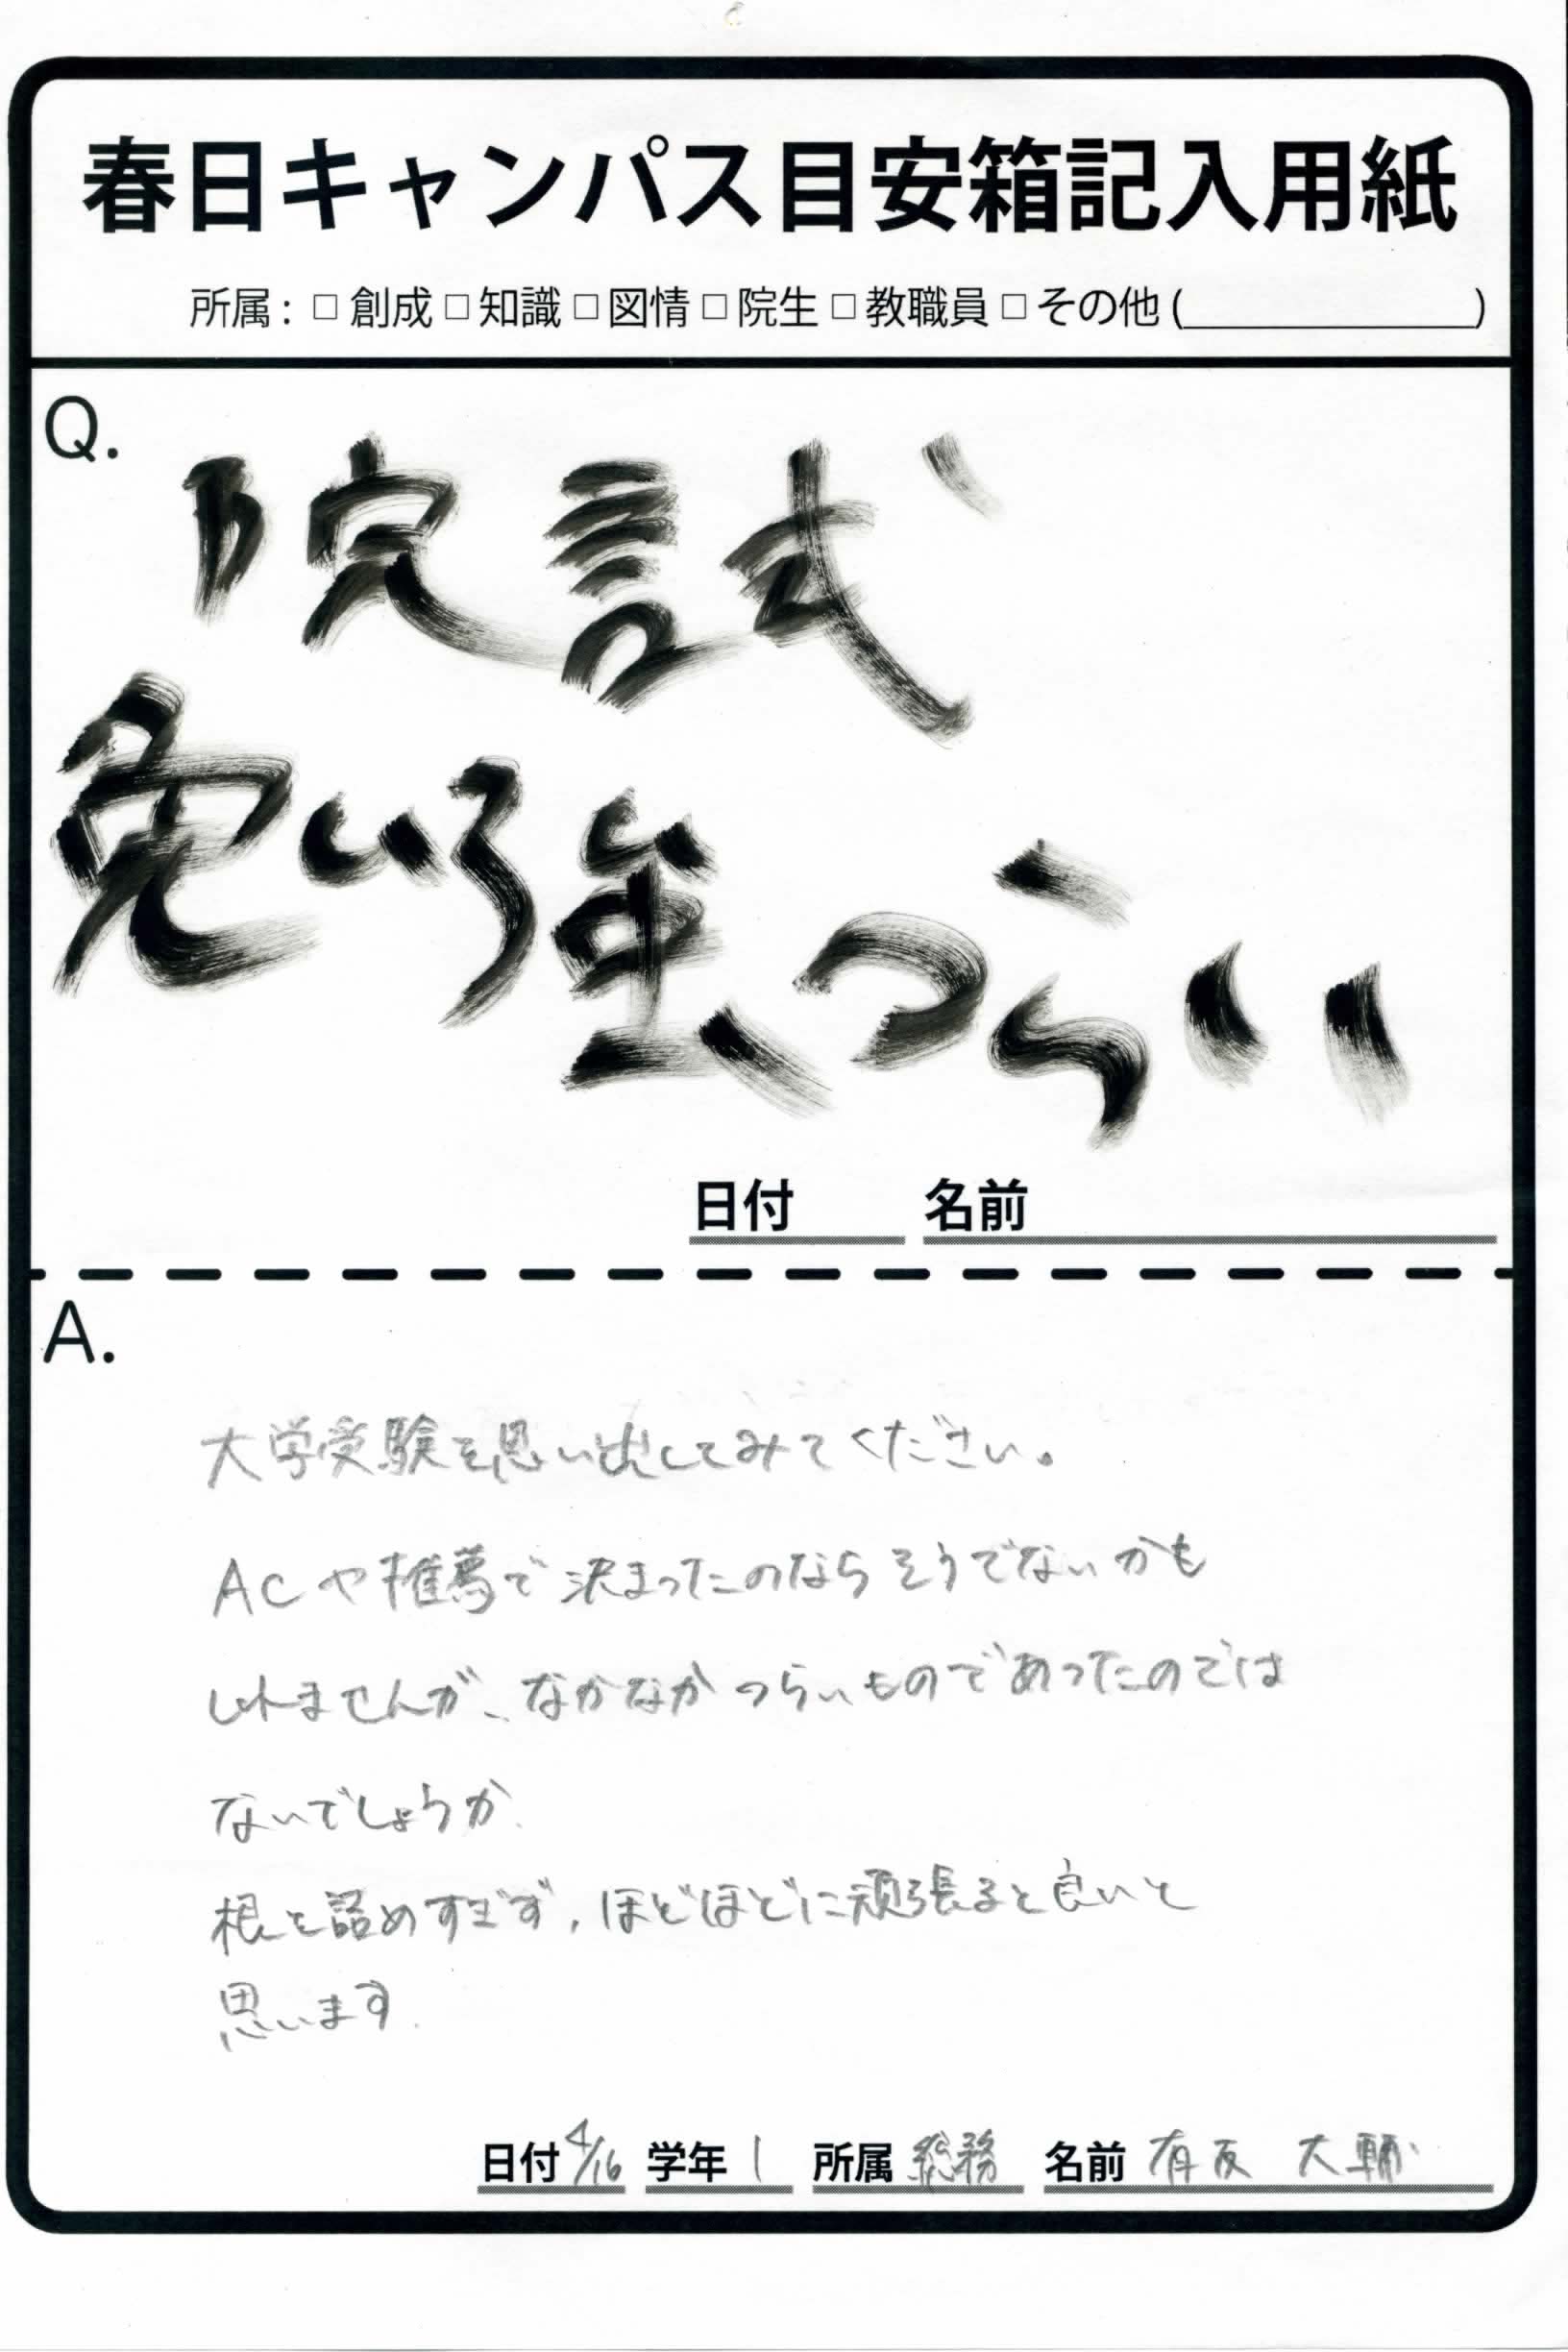 春日キャンパス目安箱記入用紙
所属: □ 創成 □ 知識 □ 図情 □ 院生 □ 教職員 □ その他 (____________)
Q.
院試
勉強、つらい
日付 名前
A.
大学受験を思い出してみてください。
ACや推薦で決まったのならそうでないかも
しれませんが、なかなかつらいものであったのでは
ないでしょうか.
根を詰めすぎず,ほどほどに頑張ると良いと
思います.
日付 4/16 学年 1 所属 総務 名前 有友 大輔